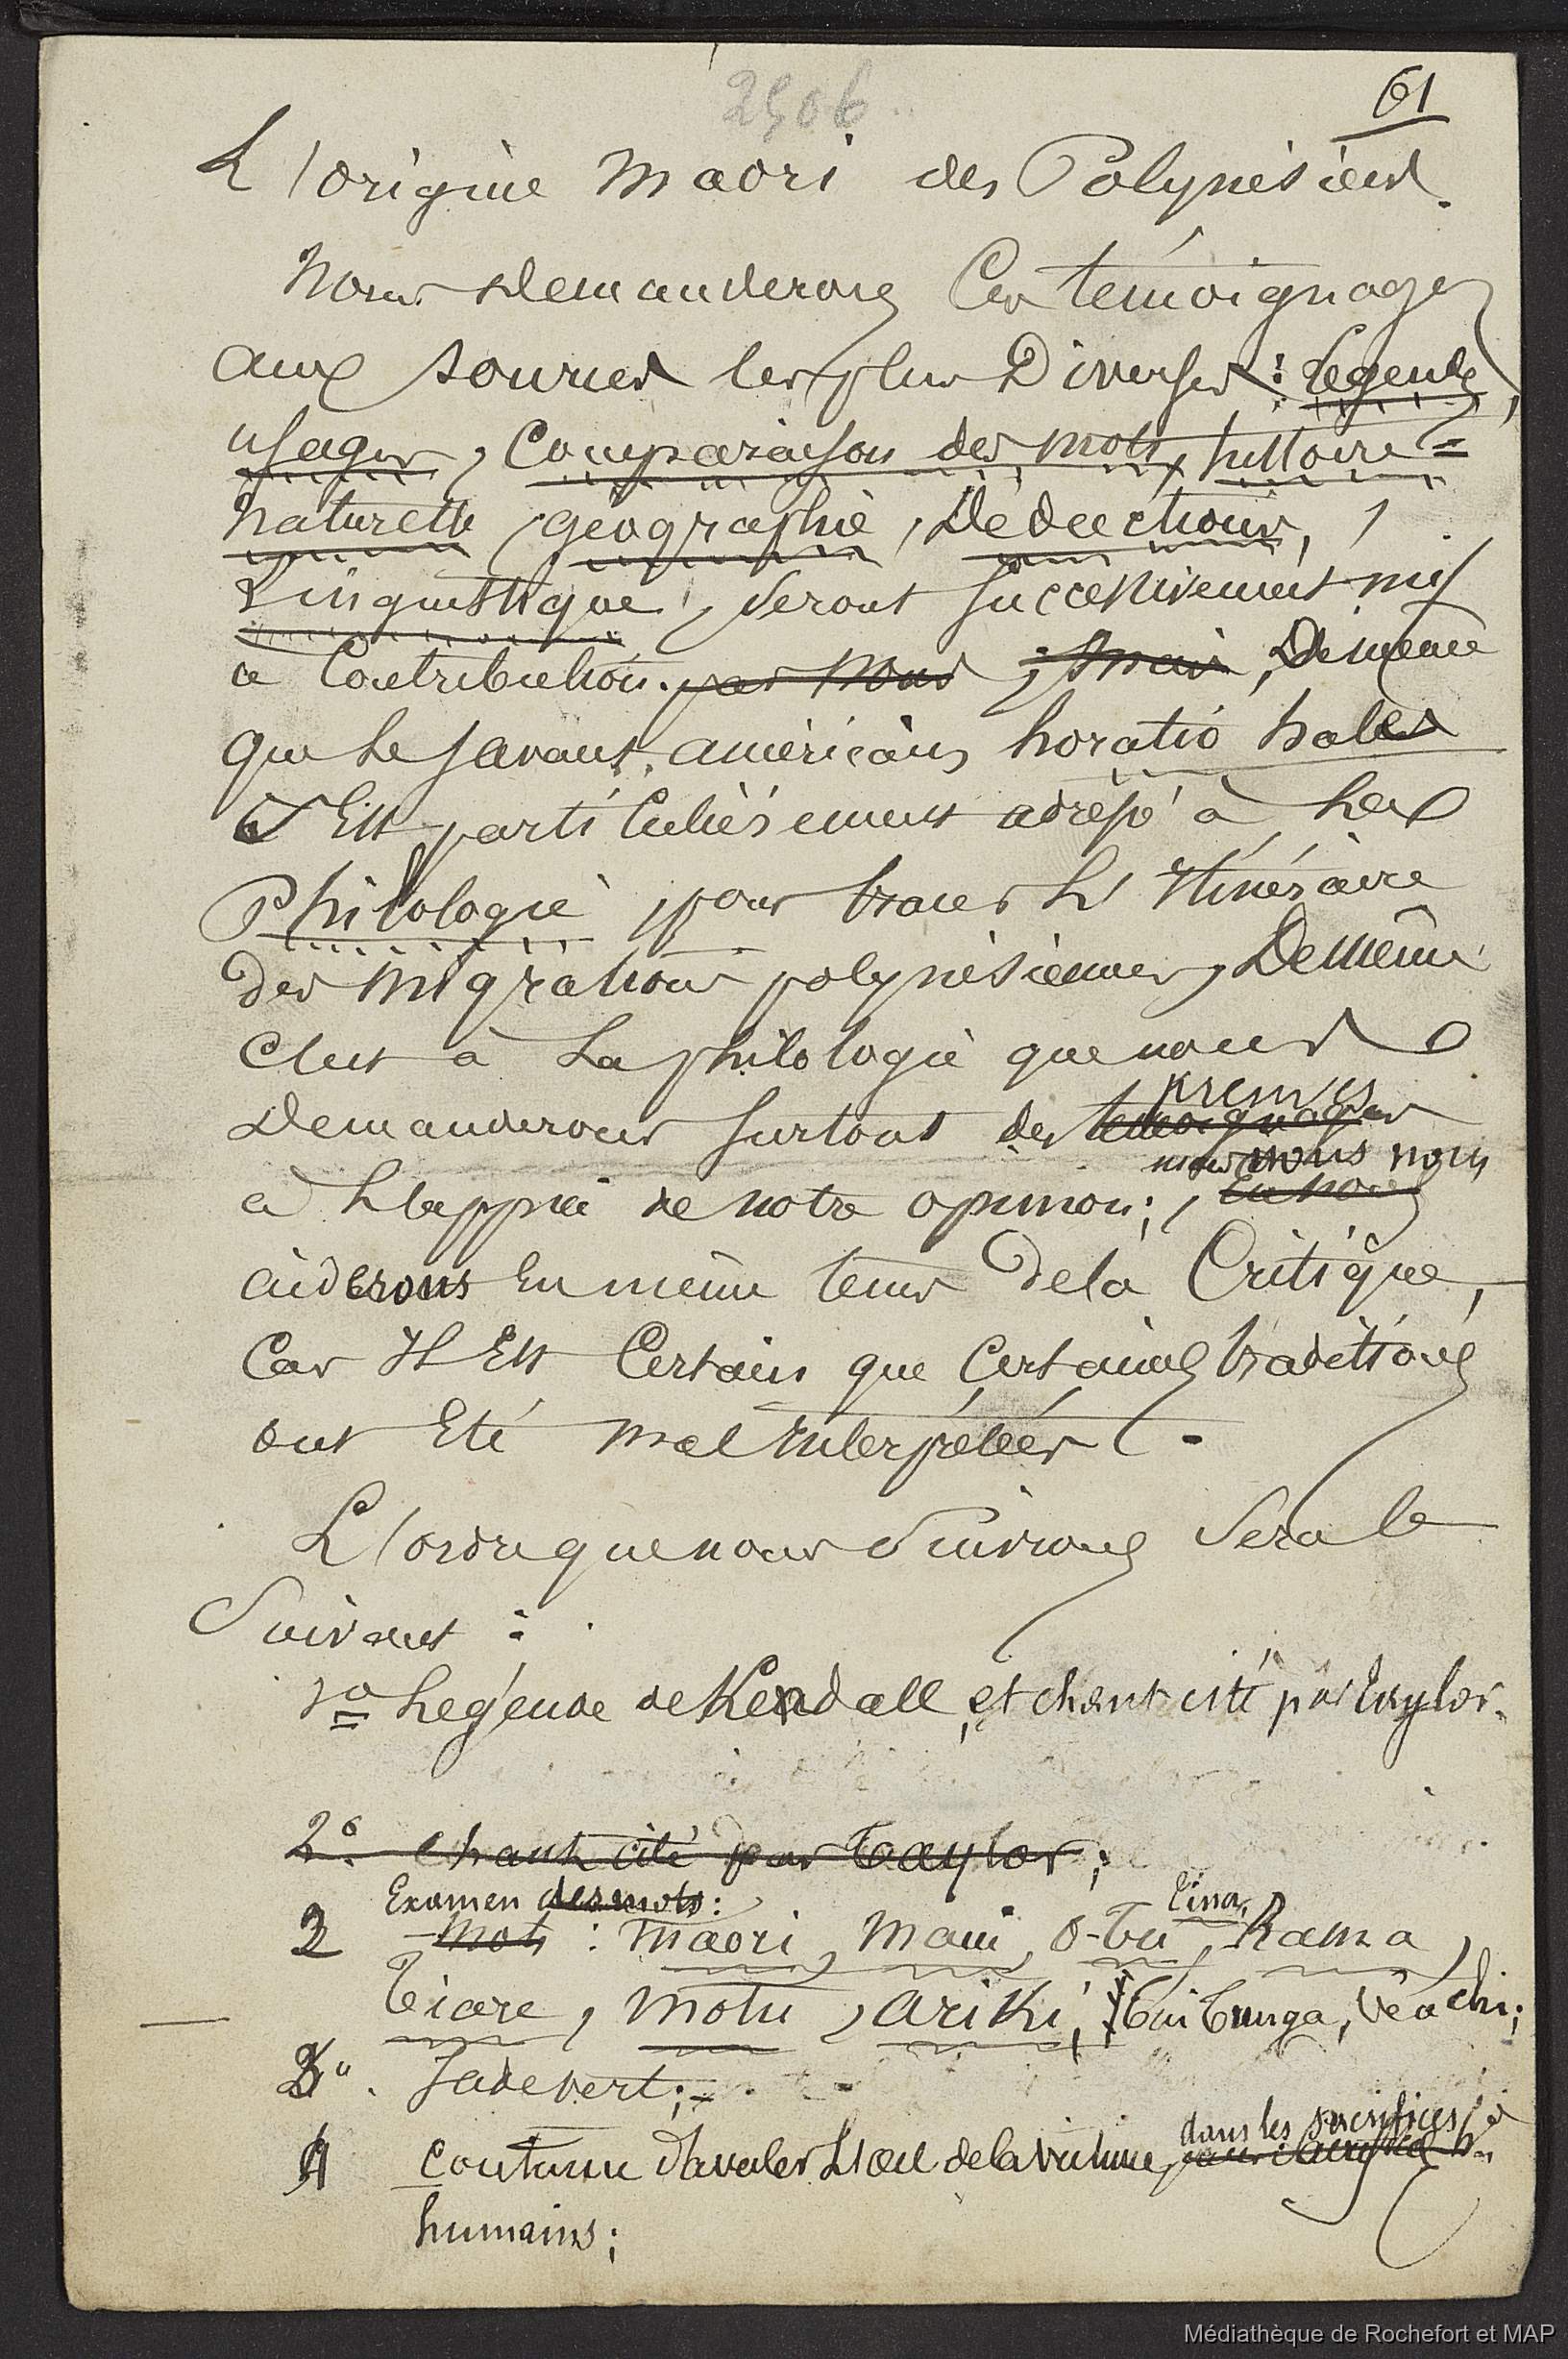 2506
61
L'origine Maori des Polynésiens.
Nous demanderons ces témoignages
aux sources les plus Diverses : légendes,
usages, Comparaison des mots, histoire=
naturelle, géographie, Déductions,
Linguistique, seront successivement mis
a Contribution. par nous ; mais, De même
que le savant américain horatio hales
s'Est particulièrement adressé à la
Philologie, pour tracer l'Itinéraire
des migrations polynésiennes, De même
c'est à La philologie que nous
preuves
Demanderons surtout des temoignages
mais nous nous
à L'appui de notre opinion ;, En nous
aiderons En même tems de la Critique,
Car Il Est Certain que Certaines traditions
ont Eté mal Interprétées.
L'ordre que nous Suivrons Sera le
Suivant :
1o Légende de Kendall, et chant cité par Taylor.
2o. Chant cité par Taylor ;
Examen des mots : Tina,
2 Mots : Maori, Maui, O-Tu, Rama,
Tiare, Motu, Ariki, Tui Tunga, Véachi ;
3o. Jade vert ;
dans les sacrifices
4 Coutume d'avaler L'oeil de la victime,
humains ;
Médiathèque de Rochefort et MAP